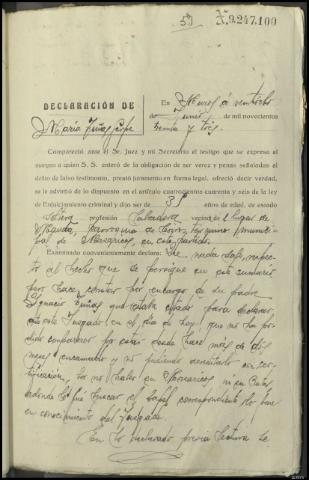 59 N.9.247.100
DECLARACIÓN DE
María
En Muros á veintiocho
de Junio de mil novecientos
treinta y tres.
Compareció ante el Sr. Juez y mi Secretario el testigo que se expresa al
margen a quien S. S. enteró de la obligación de ser veraz y penas señaladas al
delito de falso testimonio, prestó juramento en forma legal, ofreció decir verdad,
se le advirtió de lo dispuesto en el artículo cuatrocientos cuarenta y seis de la ley
de Enjuiciamiento criminal y dijo ser de 38 años de edad, de estado
soltera profesión labradora vecina el lugar de
parroquia de termino munici-
pal de Mazaricos, en este partido.
Examinado convenientemente declara: que nada sabe respec-
to al hecho que se persigue en este sumario
pero hace constar por encargo de su padre
Ignacio que estaba citado para declarar
ante este Juzgado en el día de hoy, que no ha po-
dido comparecer por estar desde hace más de dos
meses encamado y no pudiendo acreditarlo con cer-
tificación, por no haber en Mazaricos, ni en
donde fué buscar el papel correspondiente lo hace
en conocimiento del Juzgado.
En lo declarado previa lectura se